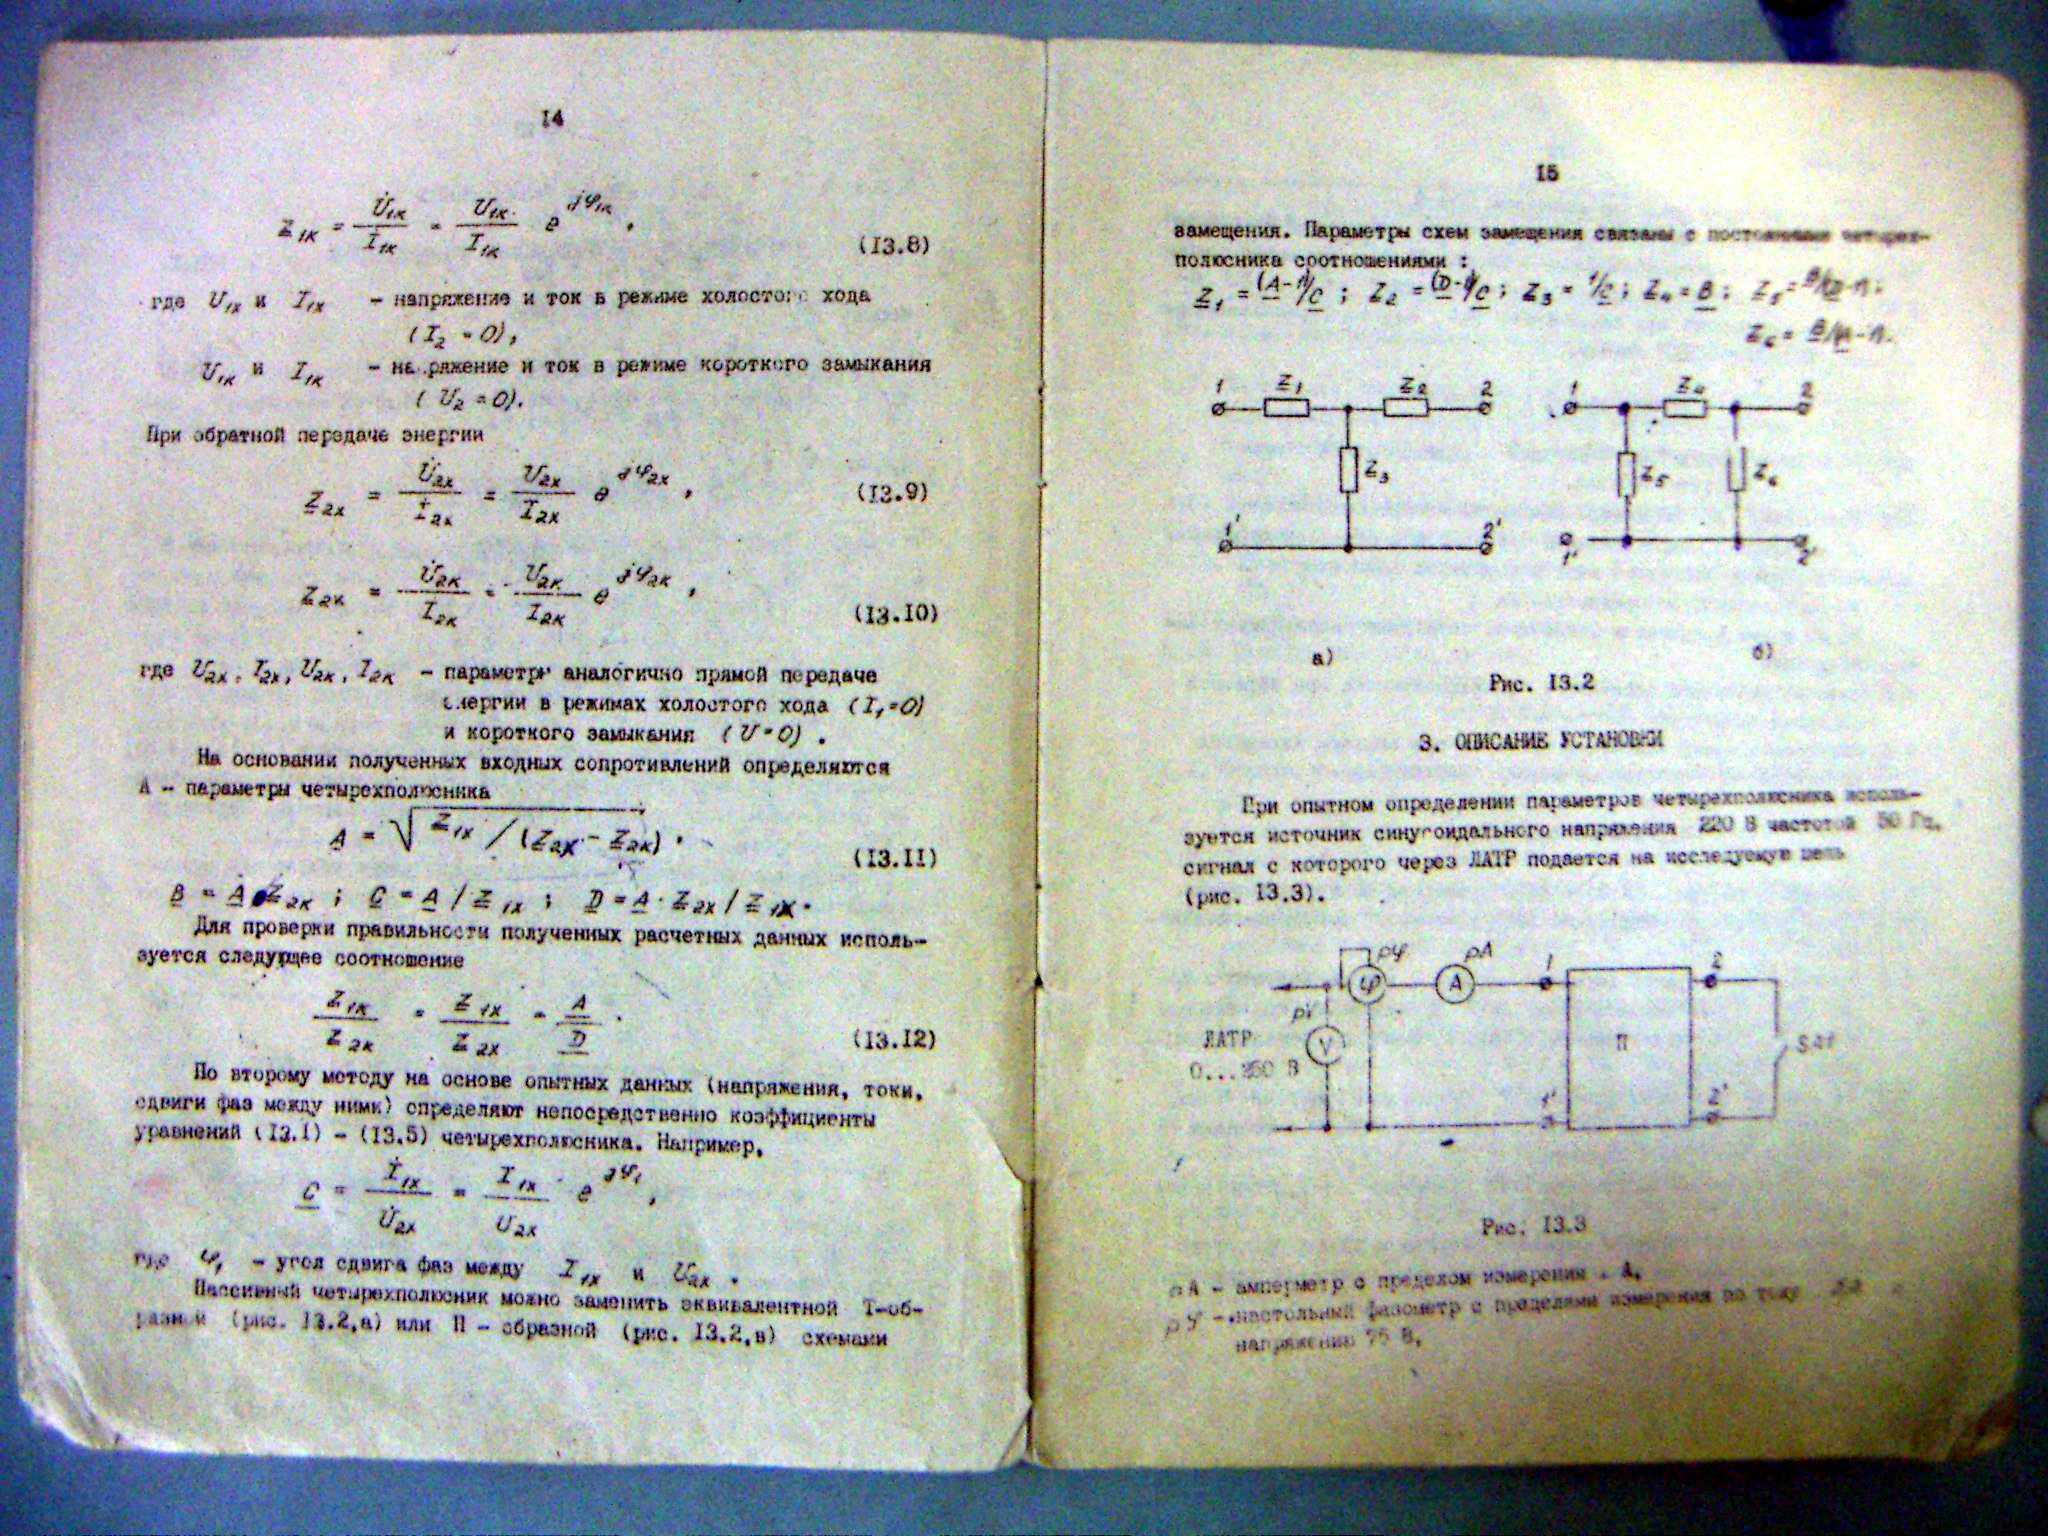 14
Z1К = U̇1К / İ1К = U1К / I1К e^jφ1К ,
(13.8)
где U1X и I1X – напряжение и ток в режиме холостого хода
(I2 = 0),
U1К и I1К – на ряжение и ток в режиме короткого замыкания
(U2 = 0).
При обратной передаче энергии
Z2X = U̇2X / İ2X = U2X / I2X e^jφ2X ,
(13.9)
Z2К = U̇2К / İ2К = U2К / I2К e^jφ2К ,
(13.10)
где U2X, I2X, U2К, I2К – параметры аналогично прямой передаче
энергии в режимах холостого хода (I1=0)
и короткого замыкания (U=0) .
На основании полученных входных сопротивлений определяются
А – параметры четырехполюсника
A = √Z1X / (Z2X – Z2К) .
(13.11)
B = A · Z2К ; C = A / Z1X ; D = A · Z2X / Z1X .
Для проверки правильности полученных расчетных данных исполь-
зуется следующее соотношение
Z1К / Z2К = Z1X / Z2X = A / D .
(13.12)
По второму методу на основе опытных данных (напряжения, токи,
сдвиги фаз между ними) определяют непосредственно коэффициенты
уравнений (13.1) – (13.5) четырехполюсника. Например,
C = İ1X / U̇2X = I1X / U2X e^jφ1 ,
где φ1 – угол сдвига фаз между I1X и U2X .
Пассивный четырехполюсник можно заменить эквивалентной Т-об-
разной (рис. 13.2,а) или П – образной (рис. 13.2,в) схемами
15
замещения. Параметры схем замещения связаны с постоянными четырех-
полюсника соотношениями :
Z1 = (A-1)/C ; Z2 = (D-1)/C ; Z3 = 1/C ; Z4 = B ; Z5 = B/(D-1) ;
Z6 = B/(A-1).
1 Z1 Z2 2 1 Z4 2
Z3 Z5 Z6
1' 2' 1' 2'
а) б)
Рис. 13.2
3. ОПИСАНИЕ УСТАНОВКИ
При опытном определении параметров четырехполюсника исполь-
зуется источник синусоидального напряжения 220 В частотой 50 Гц,
сигнал с которого через ЛАТР подается на исследуемую цепь
(рис. 13.3).
pφ pA 1 2
φ A
pV
ЛАТР V П SA1
0...250 В
1' 2'
Рис. 13.3
pA – амперметр с пределом измерения А,
pφ – настольный фазометр с пределами измерения по току
напряжению 75 В,